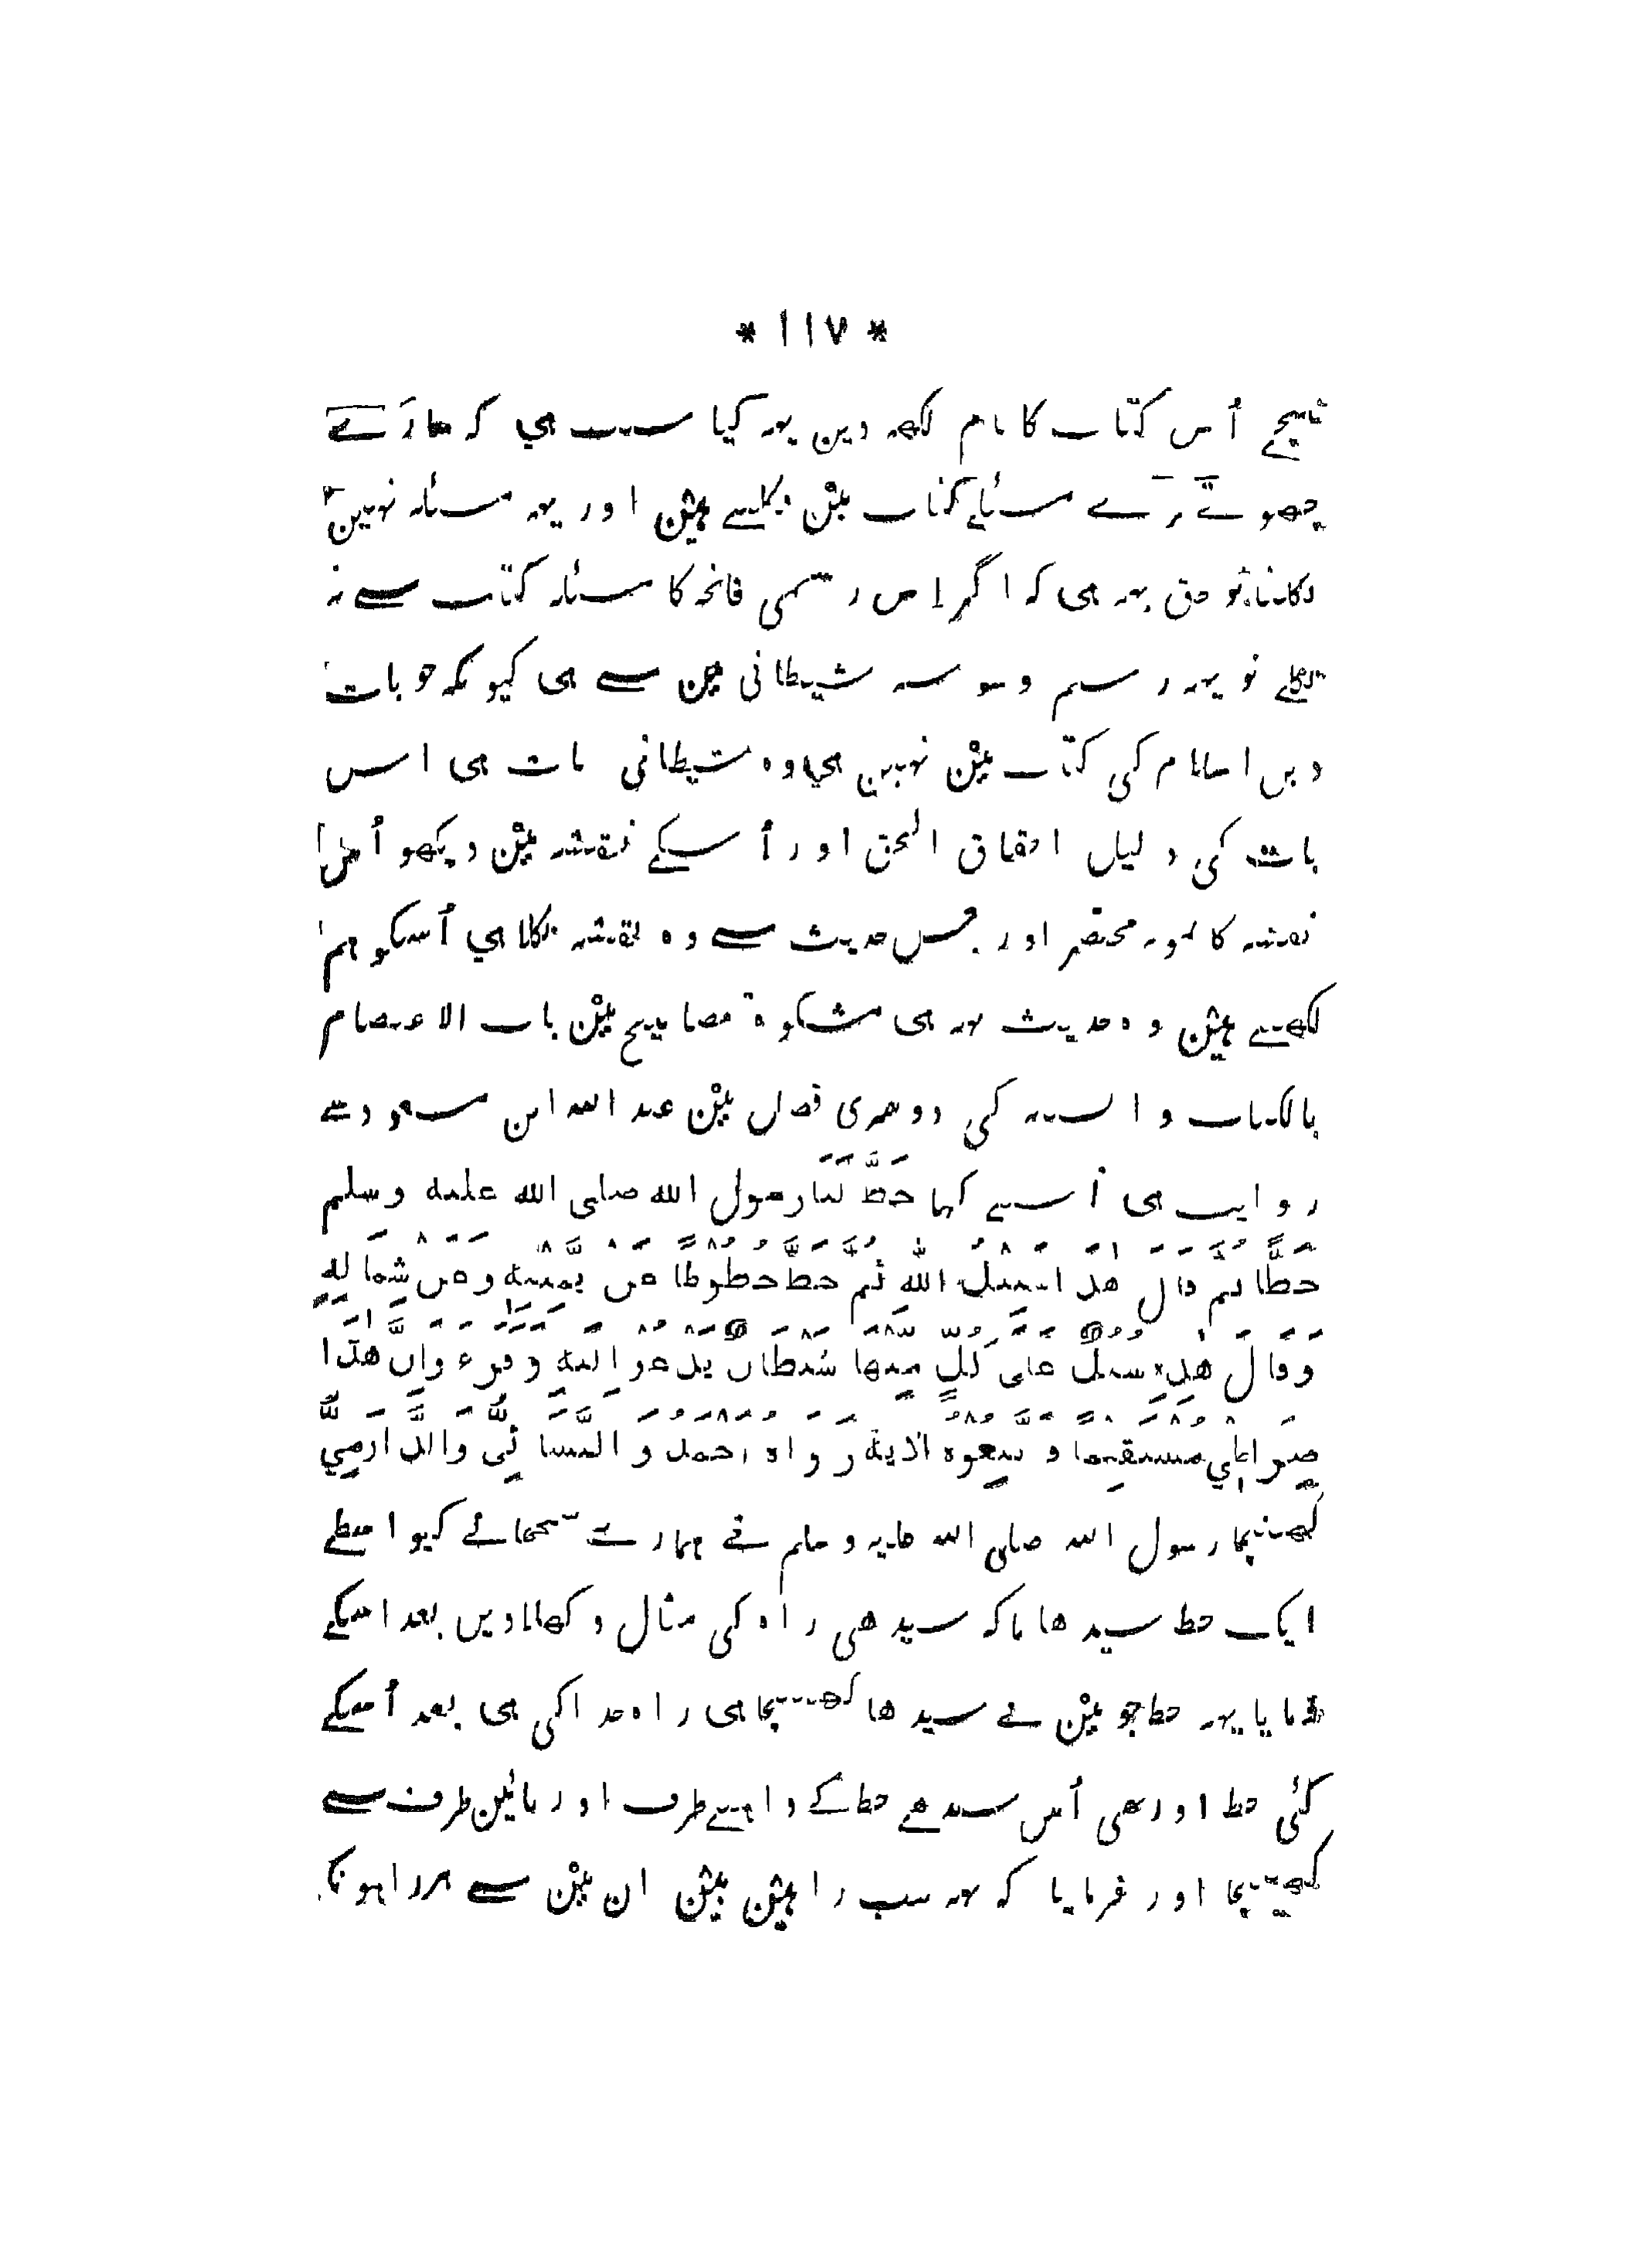 * ١١٧ *
نیچے اُس کتاب کا نام لکھہ دین یہہ کیا سبب هي کہ سارے
چھوٹے بڑے مسئلے کتاب میں نکلتے هین اور یہہ مسئلہ نہین
نکلتا تو حق یہہ هی کہ اگر اِس رسمی فاتحہ کا مسئلہ کتاب سے نہ
نکلے تو یہہ رسم وسوسہ شیطانی مین سے هی کیونکہ جو بات
دین اسلام کی کتاب مین نہین هي وہ شیطانی بات هی اس
بات کی دلیل احقاق الحق اور اُسکے نقشہ مین دیکھو اُس
نقشہ کا نمونہ مختصر اور جس حدیث سے وہ نقشہ نکلا هي اُسکو هم
لکھتے هین وہ حدیث یہہ هی مشکوة مصابیح مین باب الاعتصام
بالکتاب والسنہ کی دوسری فصل مین عبد اللہ ابن مسعود سے
روایت هی اُسنے کہا خَطَّ لَنَا رسول الله صلى الله عليه وسلم
خَطًّا ثُمَّ قَالَ هٰذَا سَبِيْلُ اللهِ ثُمَّ خَطَّ خُطُوْطًا عَنْ يَّمِيْنِهٖ وَعَنْ شِمَالِهٖ
وَقَالَ هٰذِهٖ سُبُلٌ عَلٰى كُلِّ سَبِيْلٍ مِّنْهَا شَيْطَانٌ يَدْعُوْ اِلَيْهِ وَقَرَءَ وَاَنَّ هٰذَا
صِرَاطِيْ مُسْتَقِيْمًا فَاتَّبِعُوْهُ الْاٰيَةَ رَوَاهُ اَحْمَدُ وَالنَّسَائِيُّ وَالدَّارِمِيُّ
کھینچا رسول اللہ صلی اللہ علیہ وسلم نے همارے سمجھانے کیواسطے
ایک خط سیدھا تاکہ سیدھی راہ کی مثال دکھلا دیں بعد اسکے
فرمایا یہہ خط جو مین نے سیدھا کھینچا هی راہ خدا کی هی بعد اُسکے
کئی خط اور بھی اُس سیدھے خط کے داهنے طرف اور بائین طرف سے
کھینچا اور فرمایا کہ یہہ سب راهین هین ان مین سے هر راہ